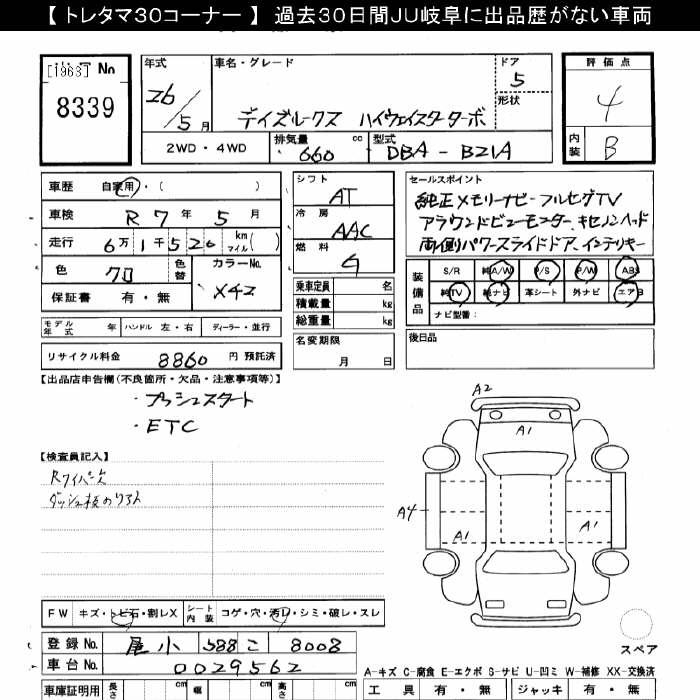 【 トレタマ30コーナー 】 過去30日間JU岐阜に出品歴がない車両
[1963] No
8339
年式
26/5月
車名・グレード
デイズルークス ハイウェイスターターボ
ドア
5
形状
2WD・4WD
排気量 660 cc
型式 DBA-B21A
評価点
4
内装
B
車歴 自家用・( )
車検 R7年5月
走行 6万1千520 km マイル( )
色 クロ
色替
カラーNo. X42
保証書 有・無
モデル年式 年 ハンドル 左・右 ディーラー・並行
リサイクル料金 8860円 預託済
シフト
AT
冷房
AAC
燃料
G
乗車定員 名
積載量 kg
総重量 kg
名変期限
月 日
セールスポイント
純正メモリーナビ フルセグTV
アラウンドビューモニター. キセノンヘッド
両側パワースライドドア、インテリキー
装備品
S/R 純A/W P/S P/W ABS
純TV 純ナビ 革シート 外ナビ エアB
ナビ型番:
後日品
【出品店申告欄(不良箇所・欠品・注意事項等)】
・プッシュスタート
・ETC
【検査員記入】
Rワイパー欠
A2
A1
A4
A1
A1
スペア
FW キズ・トビ石・割レX
シート内装 コゲ・穴・汚レ・シミ・破レ・スレ
登録No. 尾小 588 こ 8008
車台No. 0029562
A-キズ C-腐食 E-エクボ S-サビ U-凹ミ W-補修 XX-交換済
車庫証明用 長さ cm 幅 cm 高さ cm
工具 有・無 ジャッキ 有・無